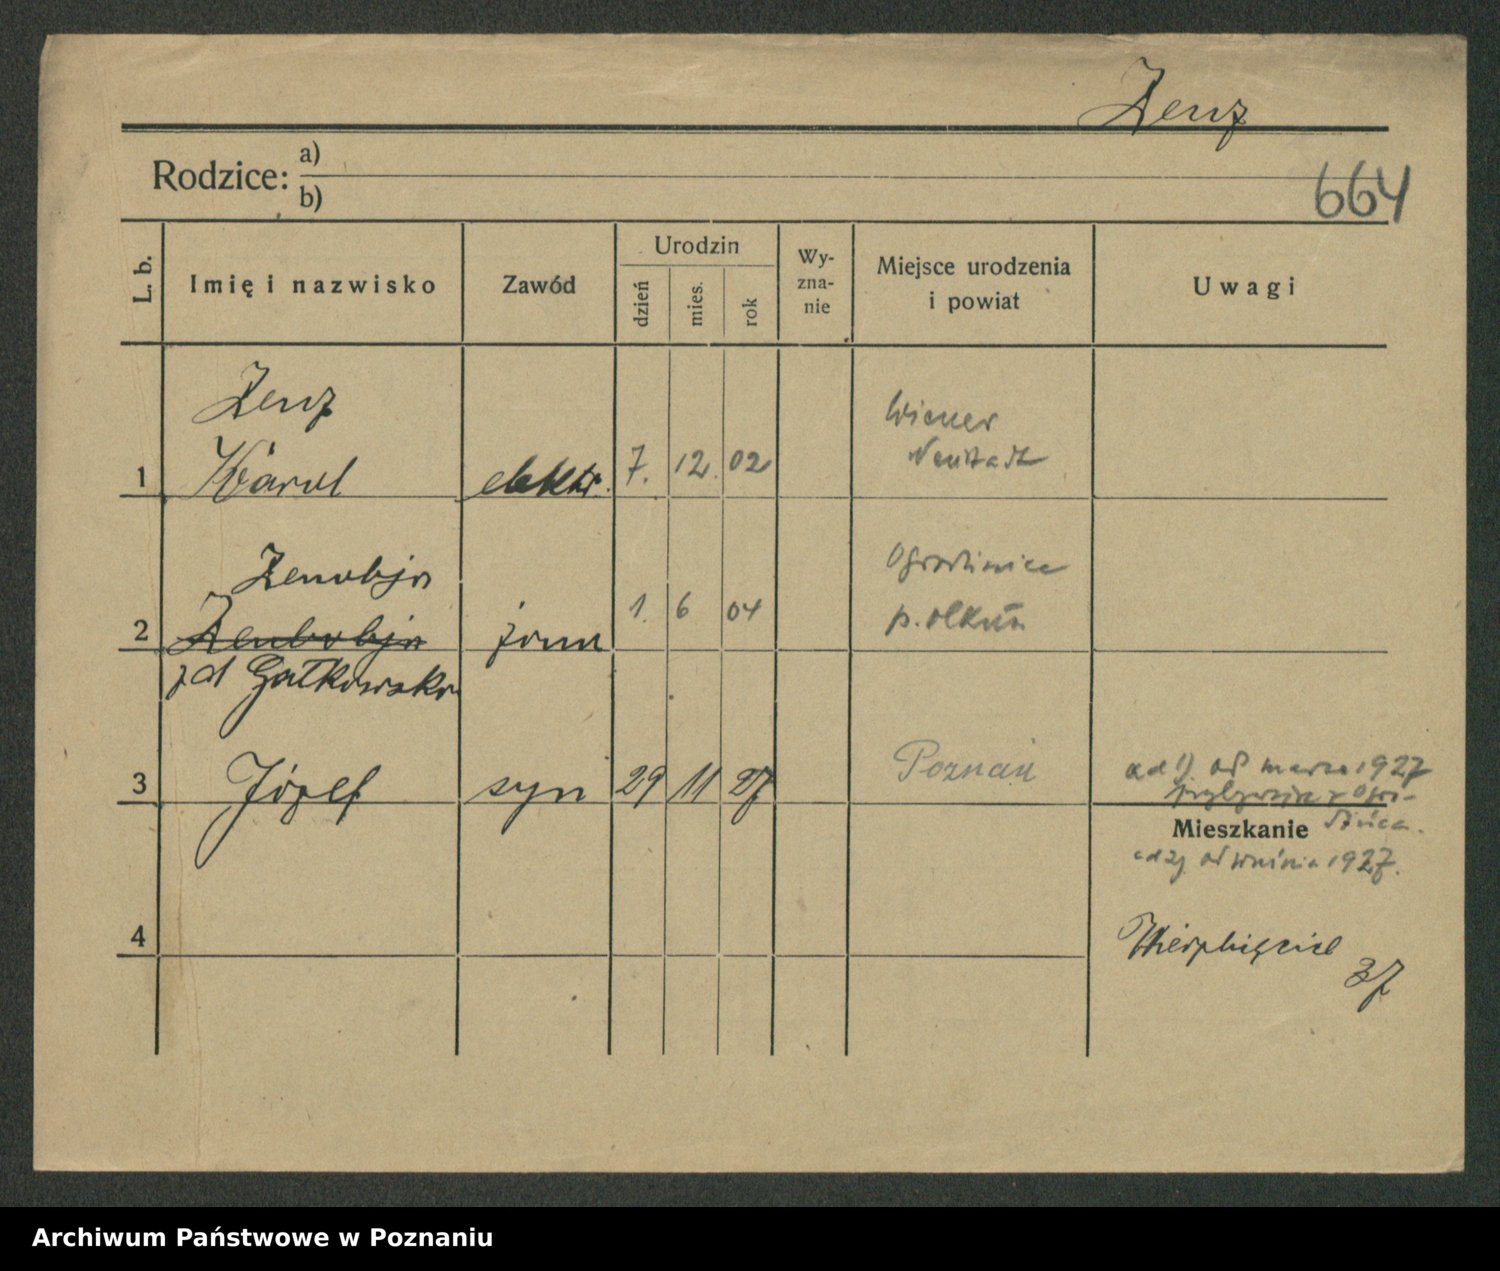 Zenz
Rodzice: a)
b)
664
L. b.
Imię i nazwisko
Zawód
Urodzin
dzień
mies.
rok
Wy-
zna-
nie
Miejsce urodzenia
i powiat
Uwagi
Zenz
Wiener
Neustadt
1 Karol elektr. 7. 12. 02
Zenobja
Ogrodzieniec
2 żona 1. 6 04
p. Olkusz
zd Gałkowska
3 Józef syn 29 11 27 Poznań
ad 1) od marca 1927
Mieszkanie
ad 2) od 1927.
4
Wierzbięcice
37
Archiwum Państwowe w Poznaniu